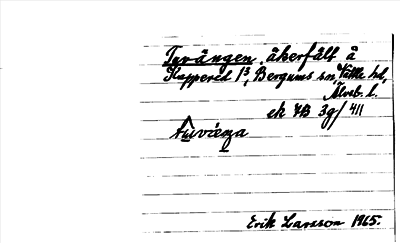 Tuvängen, åkerfält å
Kappered 1³, Bergums sn, Vättle hd,
Älvsb. l.
ek 7B 3g/ 411
Erik Larsson 1965.